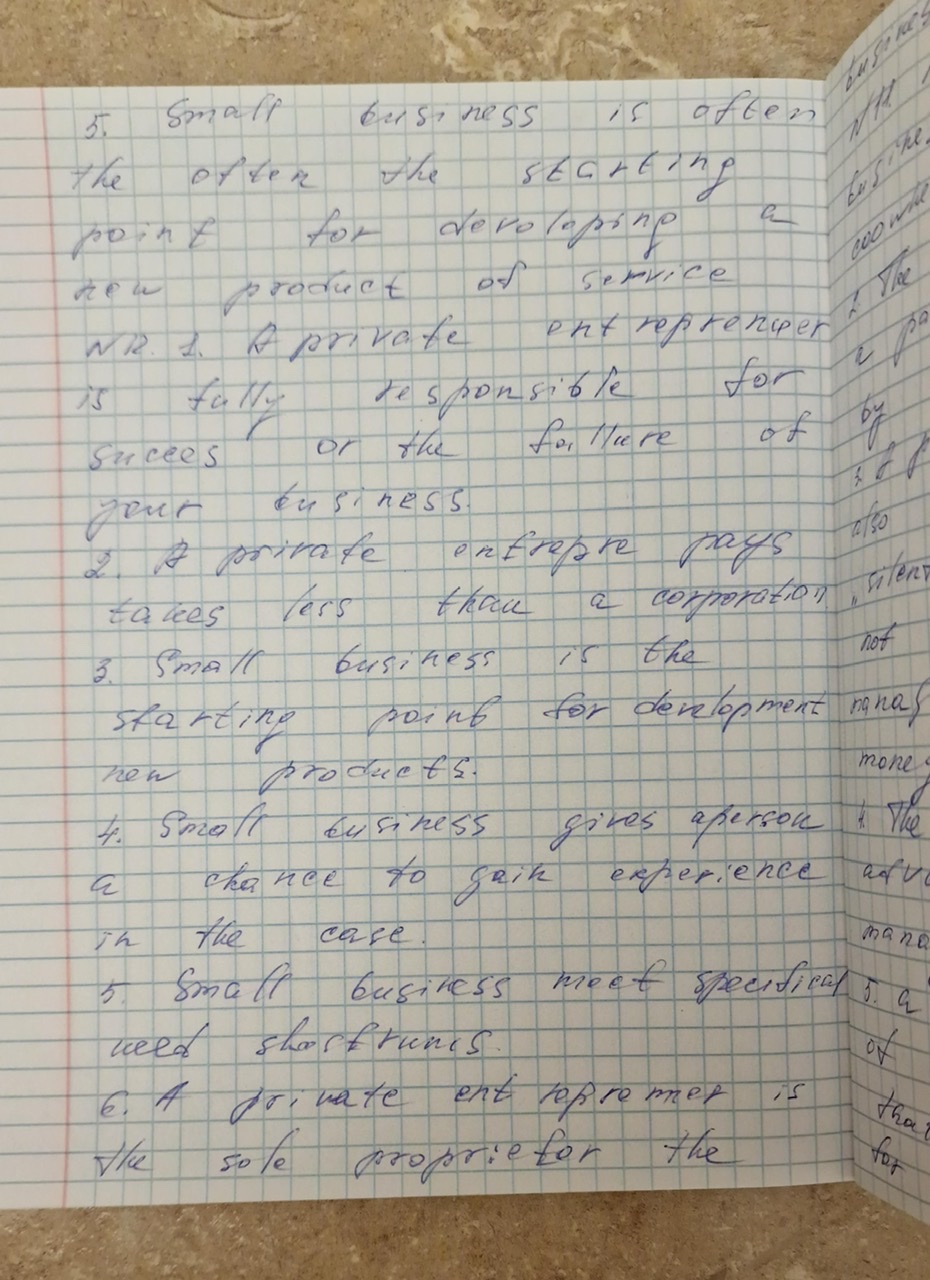 5. Small business is often
the often the starting
point for developing a
new product of service
NR. 1. A private entreprenuer
is fully responsible for
succes or the faillure of
your business.
2. A private entrepre pays
takes less than a corporation
3. Small business is the
starting point for development
new products.
4. Small business gives aperson
a chance to gain experience
in the case.
5. Small business meet specifical
need
6. A private entrepremer is
the sole proprietor the
business
NR
busine
2. The
a pa
by
3. A p
also
"silent
not
manag
money
4. The
adva
mana
5. a
of
that
for